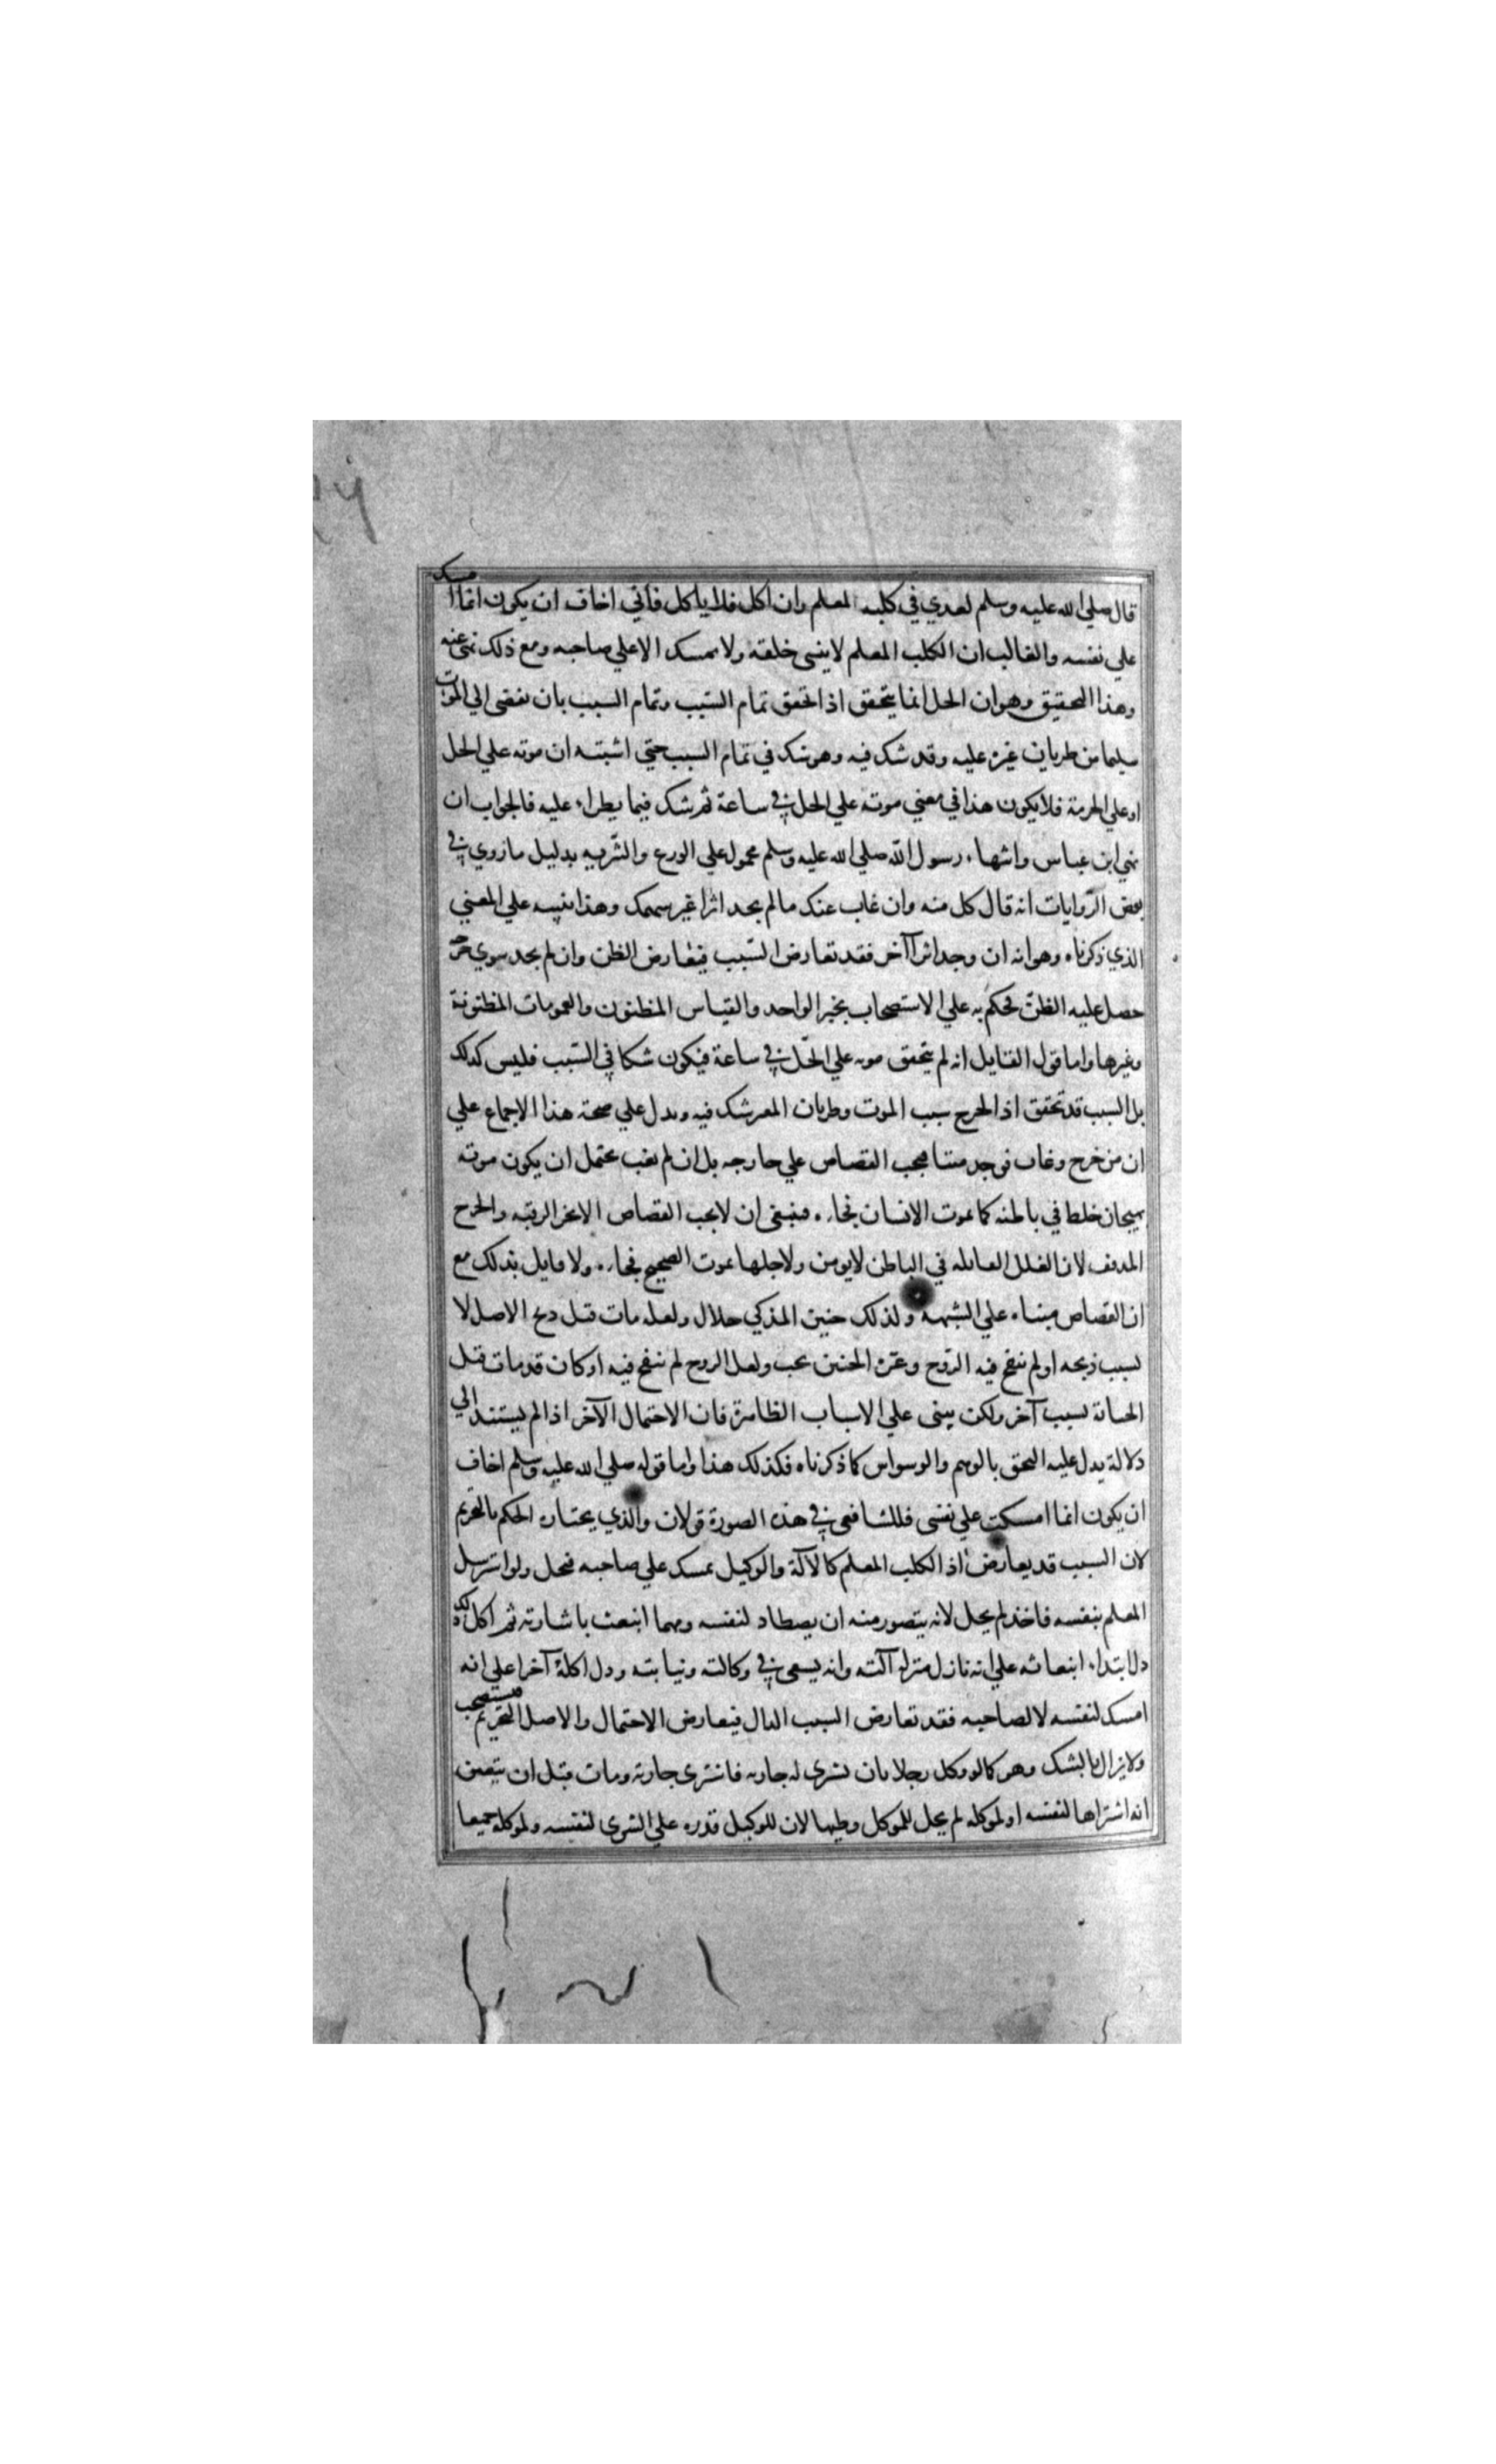 قال صلي الله عليه وسلم لعدي في كلبه المعلم وان اكل فلا ياكل فاني اخاف ان يكون انما امسك
علي نفسه والغالب ان الكلب المعلم لا ينسى خلقته ولا يمسك الا علي صاحبه ومع ذلك نهى عنه
وهذا التحقيق وهو ان الحل انما يتحقق اذا تحقق تمام السبب وتمام السبب بان يفضى الي الموت
سليما من طريان غيره عليه وقد شك فيه وهو شك في تمام السبب حتي اشبته ان موته علي الحل
او علي الحرمة فلا يكون هذا في معني موته علي الحل في ساعة ثم شك فيما يطراء عليه فالجواب ان
نهي ابن عباس وانتهاء رسول الله صلي الله عليه وسلم محمول علي الورع والتنزيه بدليل ما روي في
بعض الروايات انه قال كل منه وان غاب عنك ما لم يجد اثرا غير سهمك وهذا ينبيه علي المعني
الذي ذكرناه وهو انه ان وجد اثرا آخر فقد تعارض السبب فيتعارض الظن وان لم يجد سوي جرحه
حصل عليه الظن فحكم به علي الاستصحاب بخبر الواحد والقياس المظنون والعمومات المظنونة
وغيرها واما قول القايل انه لم يتحقق موته علي الحل في ساعة فيكون شكا في السبب فليس كذلك
بل السبب قد تحقق اذ الجرح سبب الموت وطريان المغير شك فيه ويدل علي صحة هذا الاجماع علي
ان من جرح وغاب فوجد ميتا فيجب القصاص علي جارحه بل ان لم يغب يحتمل ان يكون موته
بهيجان خلط في باطنه كما يموت الانسان فجاءه فينبغى ان لا يجب القصاص الا بحز الرقبه والجرح
المدفف لان العلل القاتله في الباطن لا يومن ولاجلها يموت الصحيح فجاءه ولا قايل بذلك مع
ان القصاص مبناه علي الشبهة ولذلك جنين المذكي حلال ولعله مات قبل ذبح الاصل لا
بسبب ذبحه او لم ينفخ فيه الروح وغرة الجنين يجب ولعل الروح لم ينفخ فيه او كان قد مات قبل
الجناية بسبب آخر ولكن يبنى علي الاسباب الظاهرة فان الاحتمال الآخر اذا لم يستند الي
دلالة يدل عليه التحق بالوهم والوسواس كما ذكرناه فكذلك هذا واما قوله صلي الله عليه وسلم اخاف
ان يكون انما امسكت علي نفسى فللشافعى في هذه الصورة قولان والذي يختاره الحكم بالتحريم
لان السبب قد يعارض اذ الكلب المعلم كالآلة والوكيل يمسك علي صاحبه فيحل ولو استرسل
المعلم بنفسه فاخذ لم يحل لانه يتصور منه ان يصطاد لنفسه ومهما انبعث باشارته ثم اكل
دل ابتداء انبعاثه علي انه نازل منزلة آلته وانه يسعى في وكالته ونيابته ودل اكله آخرا علي انه
امسك لنفسه لا لصاحبه فقد تعارض السبب الدال فيتعارض الاحتمال والاصل التحريم فيستصحب
ولا يزال بالشك وهو كما لو وكل رجلا بان يشترى له جاريه فاشترى جارية ومات قبل ان يتبين
انه اشتراها لنفسه او لموكله لم يحل للموكل وطيها لان للوكيل قدره علي الشرى لنفسه ولموكله جميعا